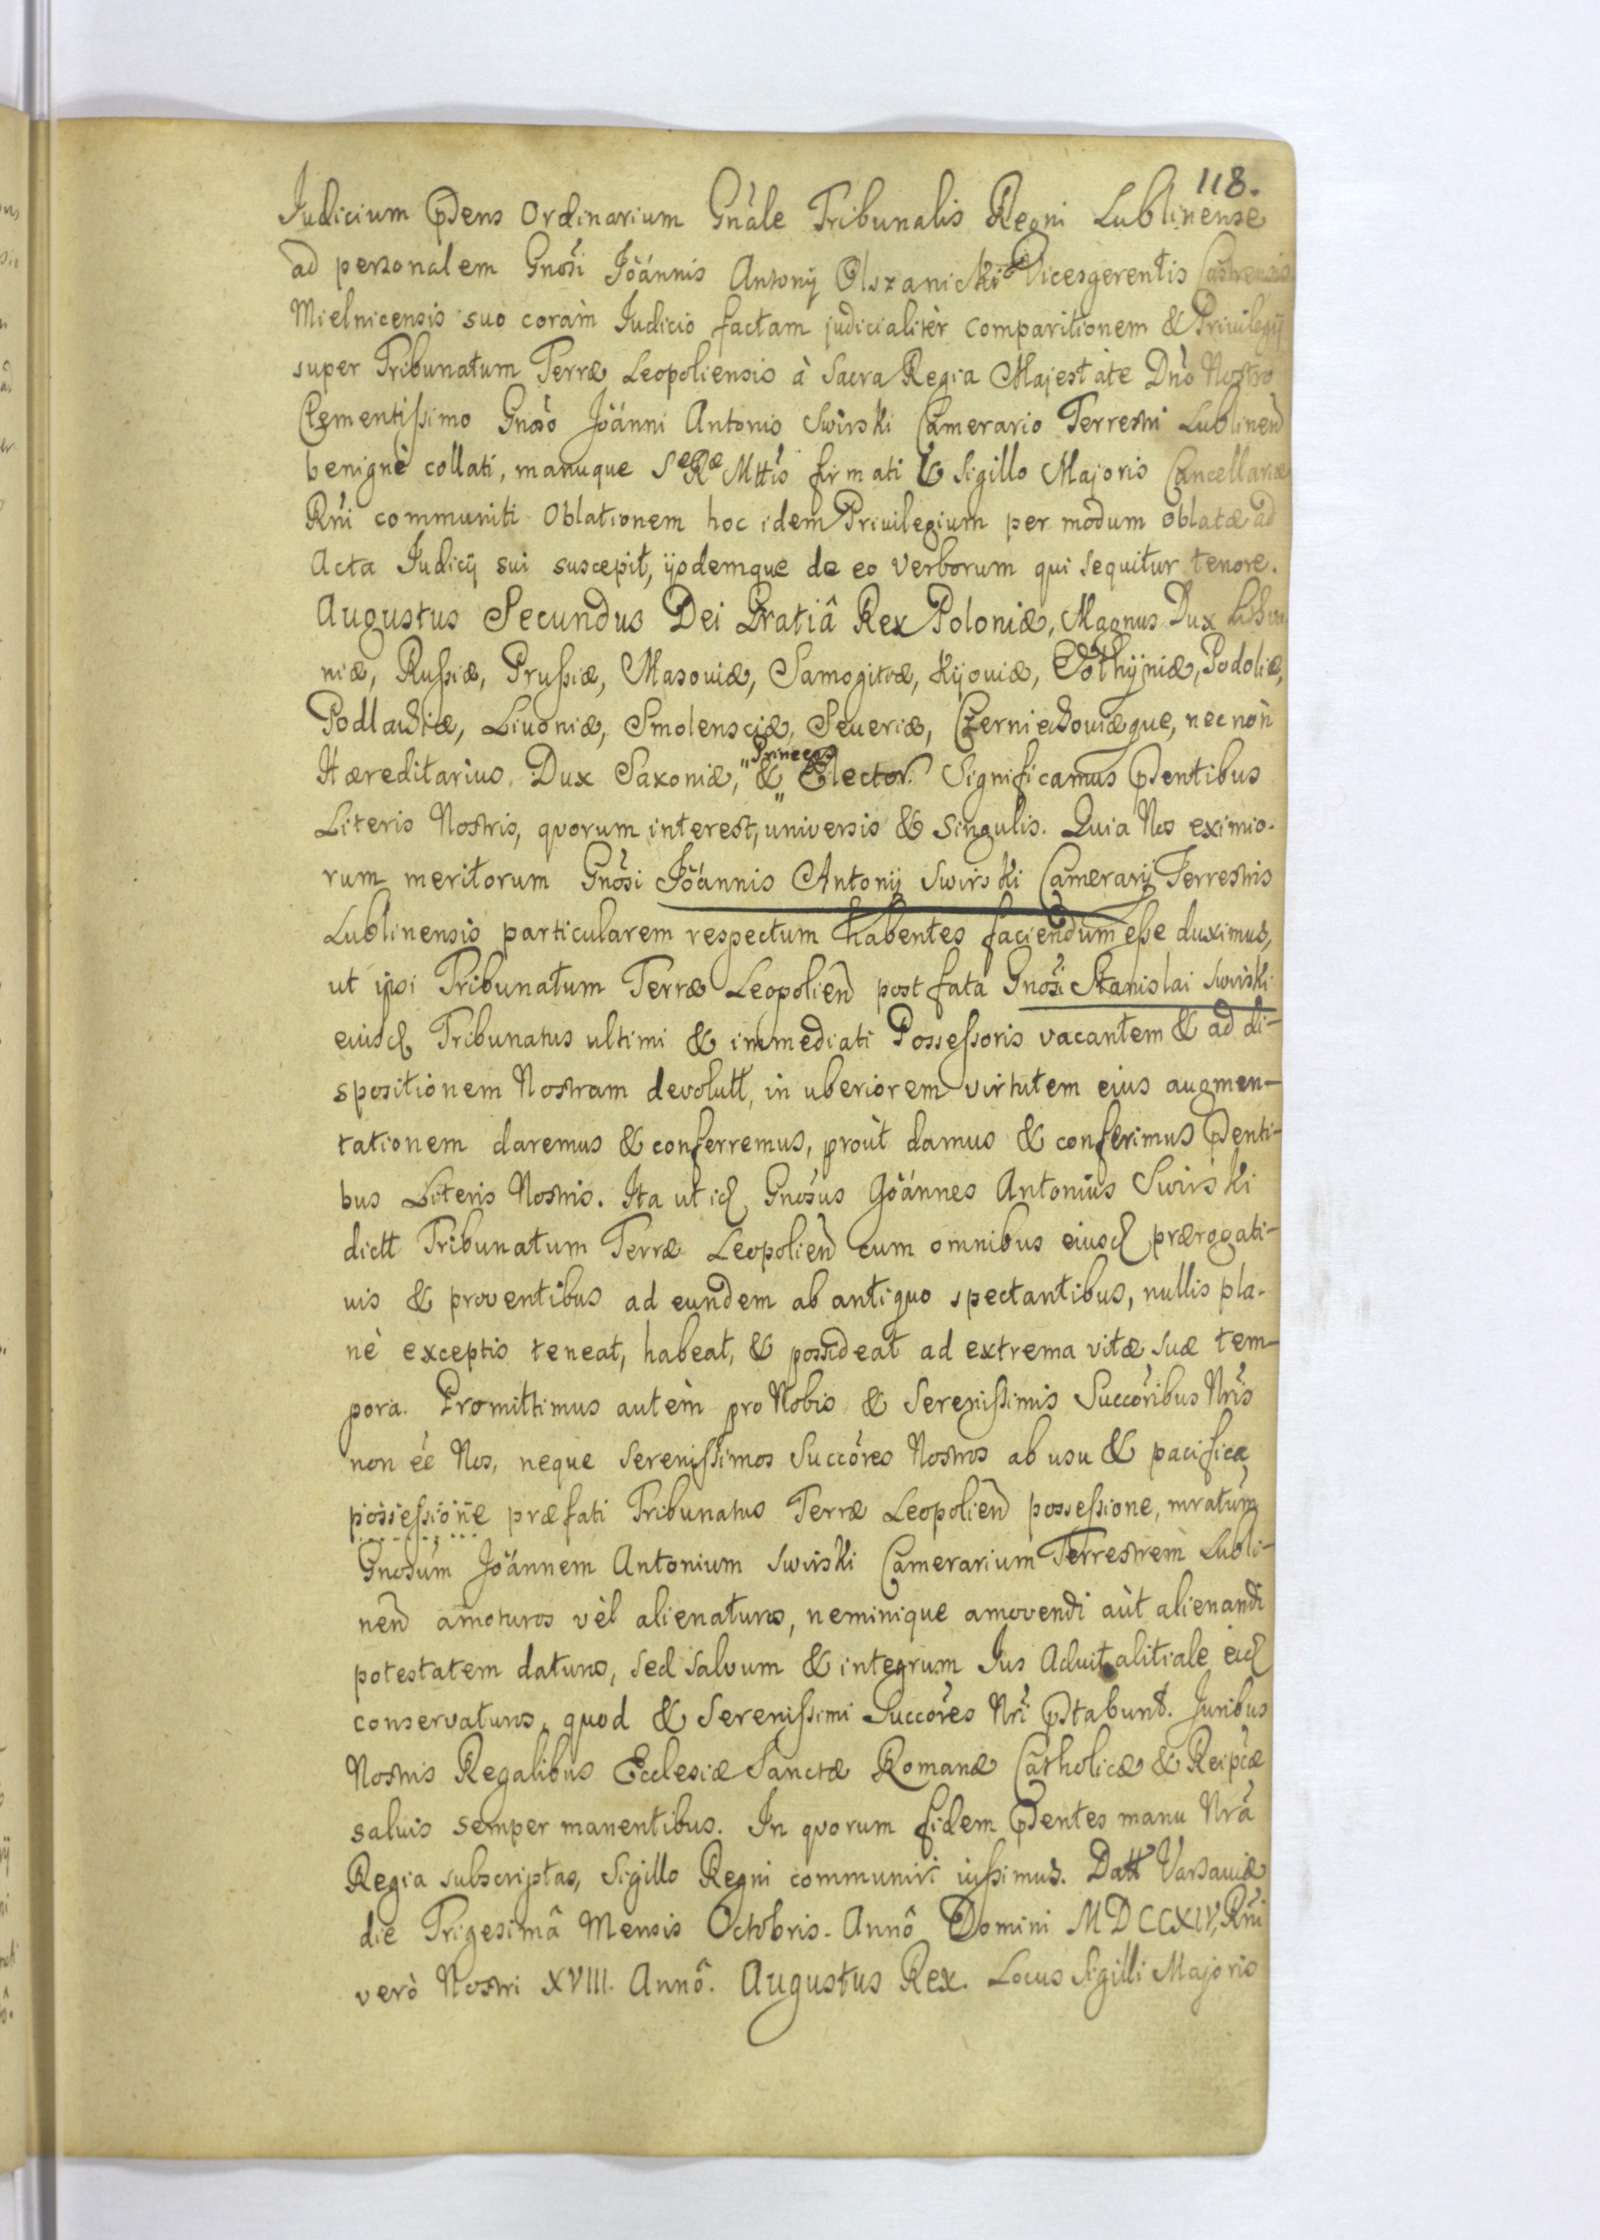 118.
Judicium Pñtens Ordinarium Gnále Tribunalis Regni Lublinense
ad personalem Gnosi Joánnis Antonÿ Olszanicki Vicesgerentis Castrensis
Mielnicensis suo coràm Judicio factam judicialitèr comparitionem & Privilegÿ
super Tribunatum Terræ Leopoliensis à Sacra Regia Majestate Dño Nostro
Clementissimo Gnoso Joánni Antonio Swirski Camerario Terrestri Lublinen
benignè collati, manuque Sæ Ræ Mttis firmati & Sigillo Majoris Cancellariæ
Rñi communiti Oblationem hoc idem Privilegium per modum oblatæ ad
Acta Judicÿ sui suscepit, ÿsdemque de eo verborum qui sequitur tenore.
Augustus Secundus Dei Gratiâ Rex Poloniæ, Magnus Dux Lithva
niæ, Russiæ, Prussiæ, Masoviæ, Samogitiæ, Kijoviæ, Volhÿniæ, Podoliæ,
Podlachiæ, Livoniæ, Smolensciæ, Severiæ, Czerniechoviæque, nec nòn
Hæreditarius Dux Saxoniæ, "&" Princeps Elector. Significamus Pñtentibus
Literis Nostris, quorum interest, universis & Singulis. Quia Nos eximio-
rum meritorum Gnosi Joánnis Antonÿ Swirski Camerarÿ Terrestris
Lublinensis particularem respectum habentes faciendum esse duximus,
ut ipsi Tribunatum Terræ Leopolien post fata Gnosi Stanislai Swirski
eiusd Tribunatus ultimi & immediati Possessoris vacantem & ad di-
spositionem Nostram devolutt, in uberiorem virtutem eius augmen-
tationem daremus & conferremus, proùt damus & conferimus Pñtenti-
bus Literis Nostris. Ita ut id Gnosus Joánnes Antonius Swirski
dictt Tribunatum Terræ Leopolien cum omnibus eiusd prærogati-
vis & proventibus ad eundem ab antiquo spectantibus, nullis pla-
nè exceptis teneat, habeat, & possideat ad extrema vitæ suæ tem-
pora. Promittimus autèm pro Nobis & Serenissimis Succoribus Nris
non éé Nos, neque Serenissimos Succores Nostros ab usu & pacifica
possessione præfati Tribunatus Terræ Leopolien possessione, mratum
Gnosum Joánnem Antonium Swirski Camerarium Terrestrem Lubli-
nen amoturos vèl alienaturos, neminique amovendi aùt alienandi
potestatem daturos, sed salvum & integrum Jus Advitalitiale eid
conservaturos, quod & Serenissimi Succores Nri Pstabunt. Juribus
Nostris Regalibus Ecclesiæ Sanctæ Romanæ Catholicæ & Reipcæ
salvis semper manentibus. In quorum fidem Pñtentes manu Nra
Regia subscriptas, Sigillo Regni communiri iussimus. Datt Varsaviæ
die Trigesimâ Mensis Octobris. Annô Domini MDCCXIV, Rñi
verò Nostri XVIII. Annô. Augustus Rex. Locus Sigilli Majoris